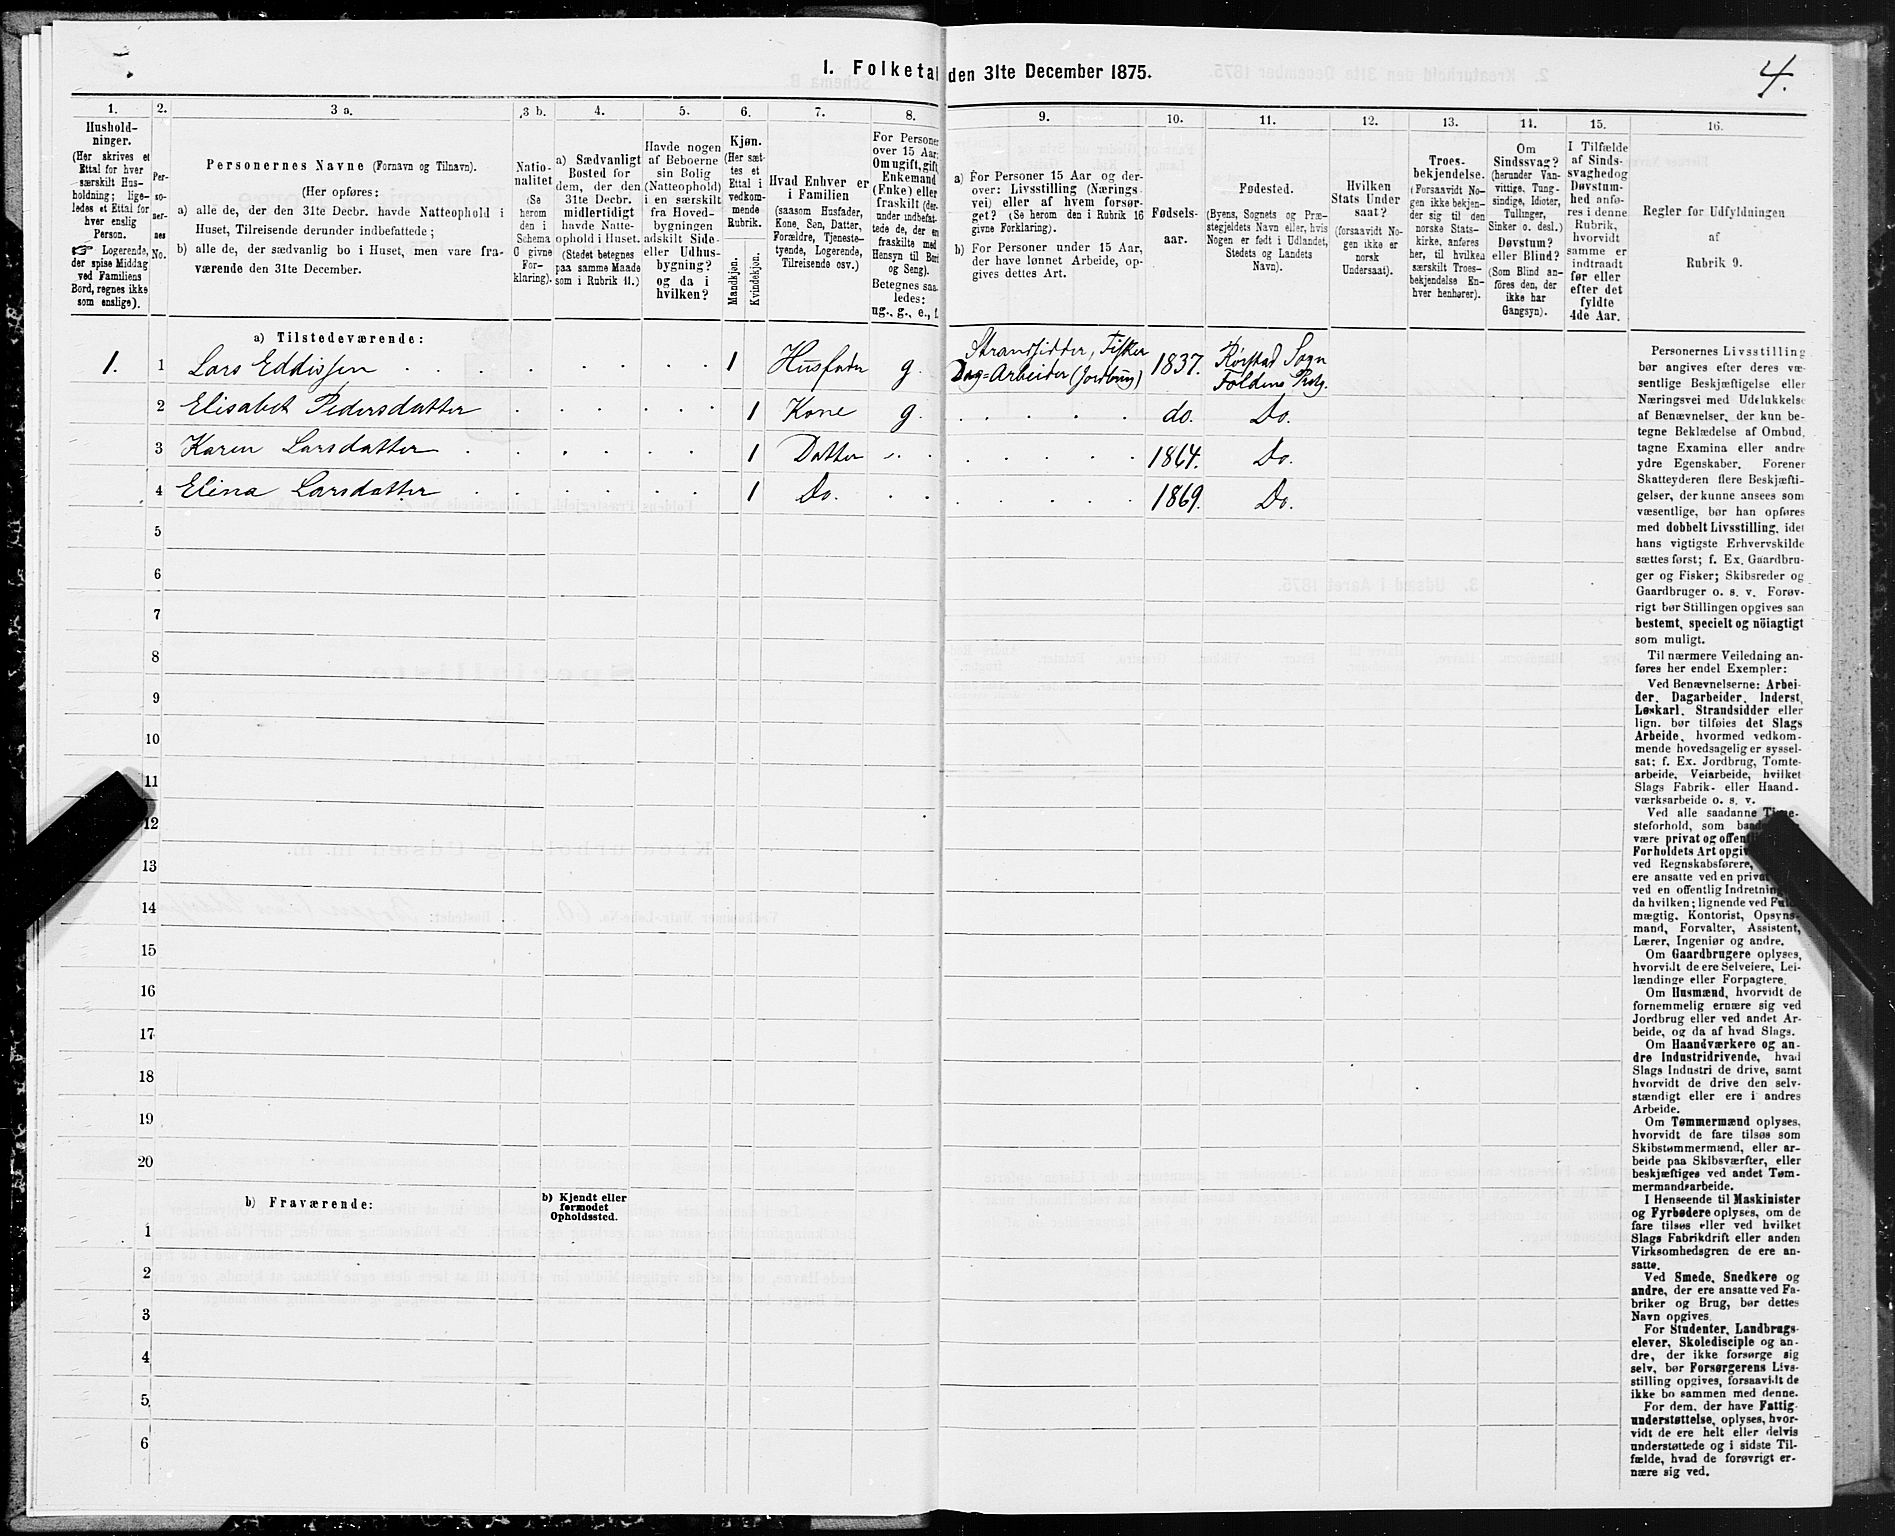 1. Folketal den 31te December 1875.
4.
1.
Hushold-
ninger.
(Her skrives et
Ettal for hver
særskilt Hus-
holdning; lige-
ledes et Ettal for
hver enslig
Person.
☞ Logerende,
der spise Middag
ved Familiens
Bord, regnes ikke
som enslige).
2.
Per-
so-
ner-
nes
No.
3 a.
Personernes Navne (Fornavn og Tilnavn).
(Her opføres:
a) alle de, der den 31te Decbr. havde Natteophold i
Huset, Tilreisende derunder indbefattede;
b) alle de, der sædvanlig bo i Huset, men vare fra-
værende den 31te December.
3 b.
Natio-
nalitet
(Se
herom
den i
Schema
O givne
For-
klaring).
4.
a) Sædvanligt
Bosted for
dem, der den
31te Decbr.
midlertidigt
havde Natte-
ophold i Huset.
(Stedet betegnes
paa samme Maade
som i Rubrik 11.)
5.
Havde nogen
af Beboerne
sin Bolig
(Natteophold)
i en særskilt
fra Hoved-
bygningen
adskilt Side-
eller Udhus-
bygning?
og da i
hvilken?
6.
Kjøn.
(Her sæt-
tes et
Ettal i
vedkom-
mende
Rubrik.
Mandkjøn.
Kvindekjøn.
7.
Hvad Enhver er
i Familien
(saasom Husfader,
Kone, Søn, Datter,
Forældre, Tjeneste-
tyende, Logerende,
Tilreisende osv.)
8.
For Personer
over 15 Aar:
Om ugift, gift,
Enkemand
(Enke) eller
fraskilt (der-
under indbefat-
tede de, der er
fraskilte med
Hensyn til Bord
og Seng).
Betegnes saa-
ledes:
ug., g., e., f.
9.
a) For Personer 15 Aar og der-
over: Livsstilling (Nærings-
vei) eller af hvem forsør-
get? (Se herom den i Rubrik 16
givne Forklaring).
b) For Personer under 15 Aar,
der have lønnet Arbeide, op-
gives dettes Art.
10.
Fødsels-
aar.
11.
Fødested.
(Byens, Sognets og Præ-
stegjeldets Navn eller, hvis
Nogen er født i Udlandet,
Stedets og Landets
Navn).
12.
Hvilken
Stats Under-
saat?
(forsaavidt No-
gen ikke er
norsk
Undersaat).
13.
Troes-
bekjendelse.
(Forsaavidt No-
gen ikke bekjen-
der sig til den
norske Stats-
kirke, anføres
her, til hvilken
særskilt Troes-
bekjendelse En-
hver henhører).
14.
Om
Sindssvag?
(herunder Van-
vittige, Tung-
sindige, Idioter,
Tullinger,
Sinker o. desl.)
Døvstum?
eller Blind?
(Som Blind an-
føres den, der
ikke har
Gangsyn).
15.
I Tilfælde
af Sinds-
svaghed og
Døvstum-
hed anfø-
res i denne
Rubrik,
hvorvidt
samme er
indtraadt
før eller
efter det
fyldte
4de Aar.
16.
Regler for Udfyldningen
af
Rubrik 9.
a) Tilstedeværende:
1. 1 Lars Eddissen 1 Husfader g. Strandsidder, Fisker Dag=Arbeider (Jordbrug) 1837. Rørstad Sogn Foldens Prstg.
2 Elisabet Pedersdatter 1 Kone g. do. Do.
3 Karen Larsdatter 1 Datter 1864. Do.
4 Elina Larsdatter 1 Do. 1869. Do.
5
6
7
8
9
10
11
12
13
14
15
16
17
18
19
20
b) Fraværende:
b) Kjendt eller
formodet
Opholdssted.
1
2
3
4
5
6
Personernes Livsstilling
bør angives efter deres væ-
sentlige Beskjæftigelse eller
Næringsvei med Udelukkelse
af Benævnelser, der kun be-
tegne Beklædelse af Ombud,
tagne Examina eller andre
ydre Egenskaber. Forener
Skatteyderen flere Beskjæfti-
gelser, der kunne ansees som
væsentlige, bør han opføres
med dobbelt Livsstilling, idet
hans vigtigste Erhvervskilde
sættes først; f. Ex. Gaardbru-
ger og Fisker; Skibsreder og
Gaardbruger o. s. v. Forøv-
rigt bør Stillingen opgives saa
bestemt, specielt og nöiagtigt
som muligt.
Til nærmere Veiledning an-
føres her endel Exempler:
Ved Benævnelserne: Arbei-
der, Dagarbeider, Inderst,
Løskarl, Strandsidder eller
lign. bør tilføies det Slags
Arbeide, hvormed vedkom-
mende hovedsagelig er syssel-
sat; f. Ex. Jordbrug, Tomte-
arbeide, Veiarbeide, hvilket
Slags Fabrik- eller Haand-
værksarbeide o. s. v.
Ved alle saadanne
steforhold, som
være privat og
Forholdets Art
ved Regnskabsførere,
ere ansatte ved en privat
ved en offentlig Indretning
da hvilken; lignende ved
mægtig, Kontorist, Opsyns-
mand, Forvalter, Assistent,
Lærer, Ingeniør og andre.
Om Gaardbrugere oplyses,
hvorvidt de ere Selveiere, Lei-
lændinge eller Forpagtere.
Om Husmænd, hvorvidt de
fornemmelig ernære sig ved
Jordbrug eller ved andet Ar-
beide, og da af hvad Slags.
Om Haandværkere og an-
dre Industridrivende, hvad
Slags Industri de drive, samt
hvorvidt de drive den selv-
stændigt eller ere i andres
Arbeide.
Om Tømmermænd oplyses,
hvorvidt de fare tilsøs som
Skibstømmermænd, eller ar-
beide paa Skibsværfter, eller
beskjæftiges ved andet Tøm-
mermandsarbeide.
I Henseende til Maskinister
og Fyrbødere oplyses, om de
fare tilsøs eller ved hvilket
Slags Fabrikdrift eller anden
Virksomhedsgren de ere an-
satte.
Ved Smede, Snedkere og
andre, der ere ansatte ved Fa-
briker og Brug, bør dettes
Navn opgives.
For Studenter, Landbrugs-
elever, Skoledisciple og an-
dre, der ikke forsørge sig
selv, bør Forsørgerens Livs-
stilling opgives, forsaavidt de
ikke bo sammen med denne.
For dem, der have Fattig-
understøttelse, oplyses, hvor-
vidt de ere helt eller delvis
understøttede og i sidste Til-
fælde, hvad de forøvrigt er-
nære sig ved.